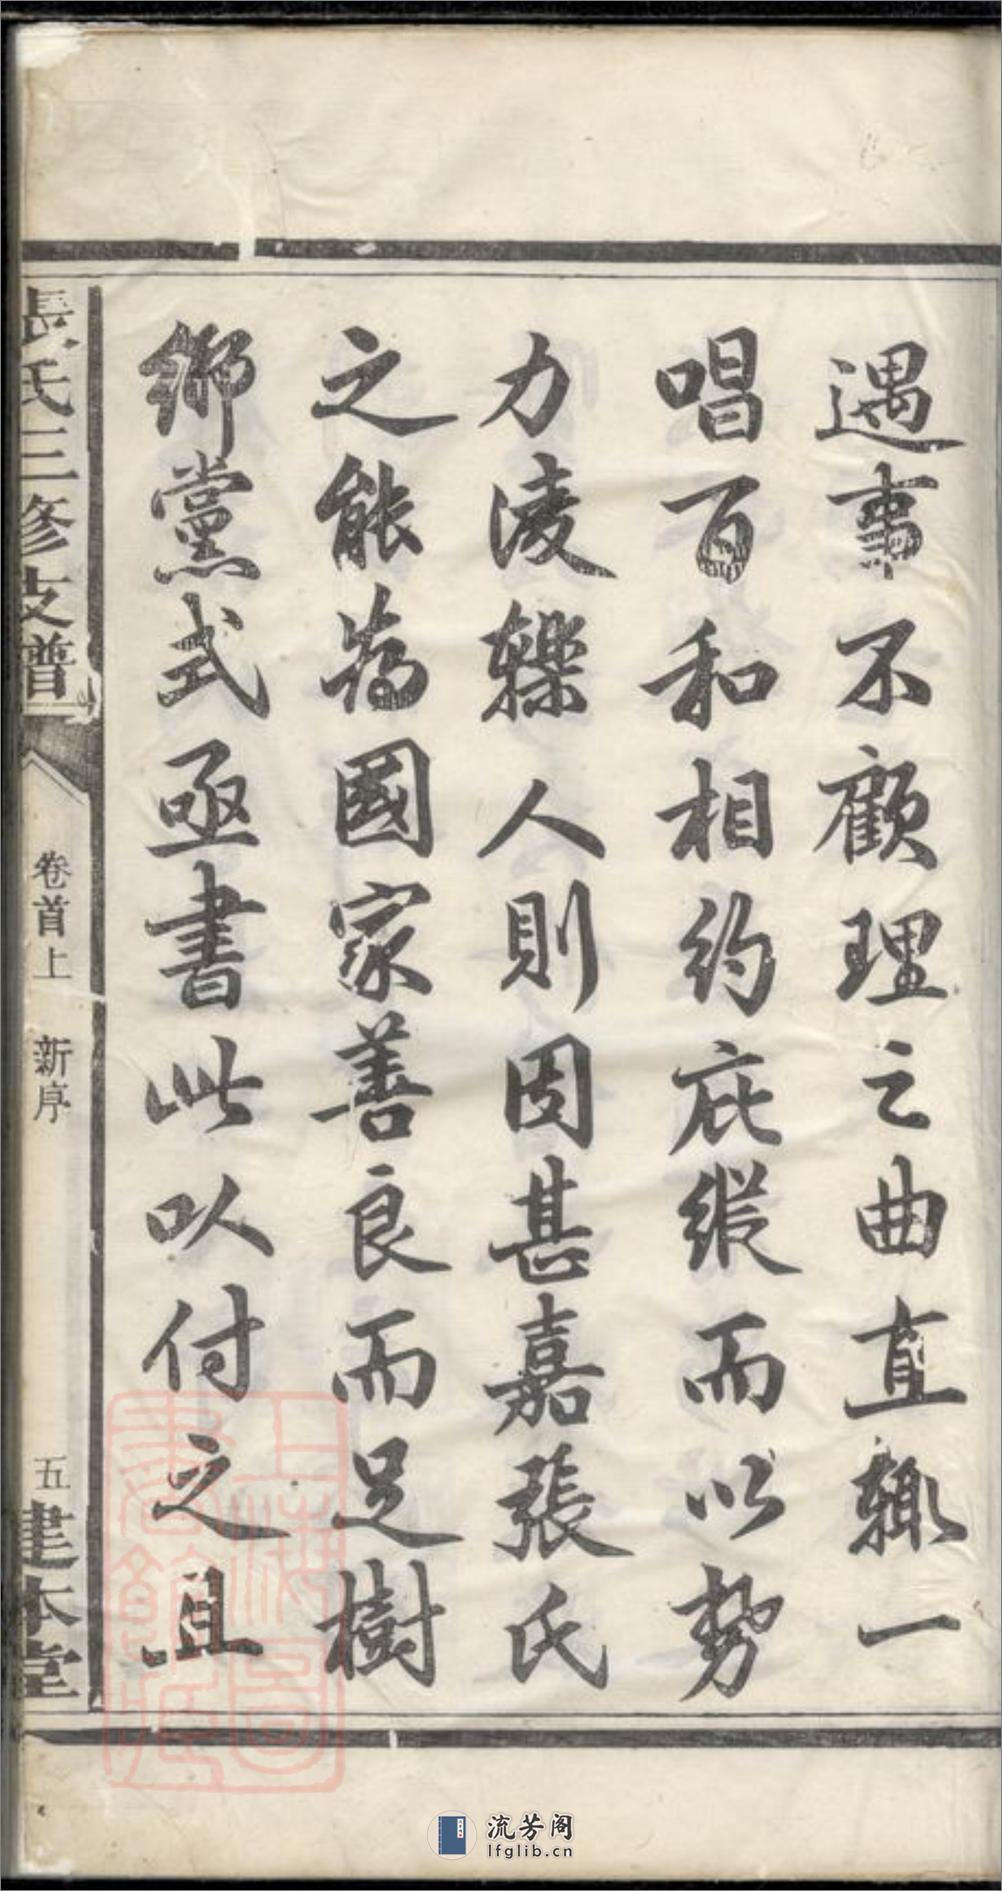 遇事不顧理之曲直輒一
唱百和相約庇縱而以勢
力凌轢人則因甚嘉張氏
之能為國家善良而足樹
鄉黨式亟書此以付之且
張氏三修支譜
卷首上 新序
五
建本堂
上海圖書館藏
流芳阁
lfglib.cn